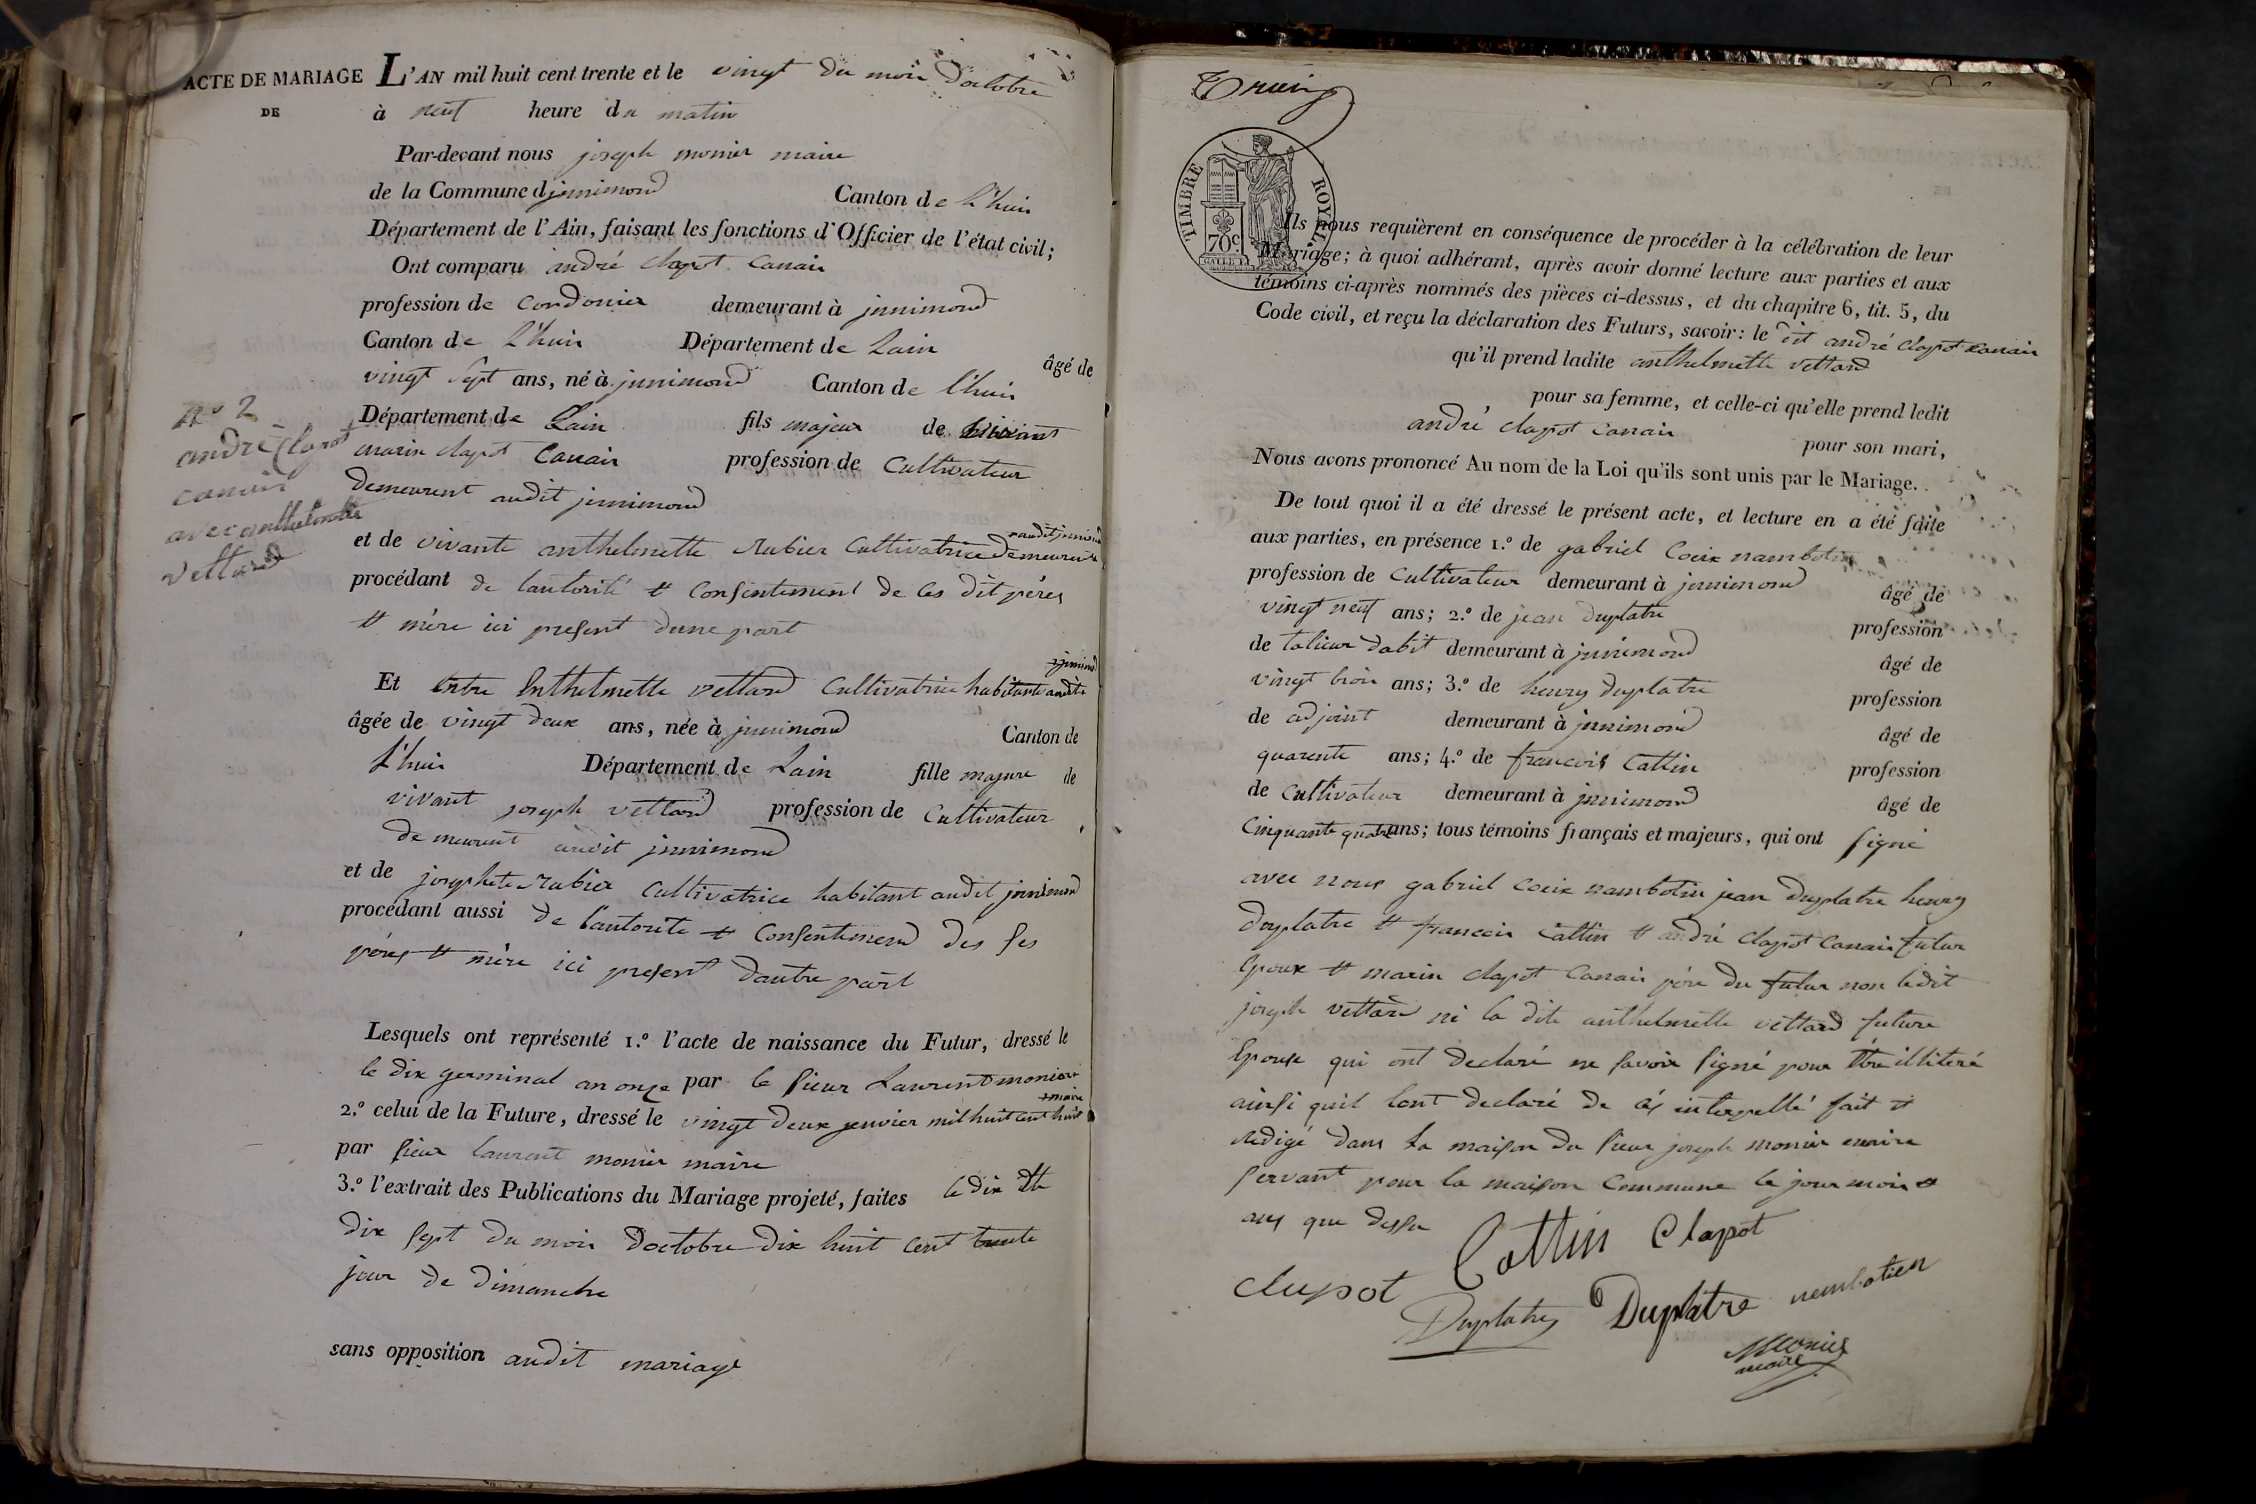 ACTE DE MARIAGE
DE
L'AN mil huit cent trente et le vingt du mois doctobre
à neuf heure du matin
Par-devant nous joseph monier maire
de la Commune djnnimond Canton de L'huis
Département de l'Ain, faisant les fonctions d'Officier de l'état civil;
Ont comparu andré clapot Canair
profession de Cordonier demeurant à jnnimond
Canton de L'huis Département de Lain âgé de
vingt sept ans, né à jnnimond Canton de l'huis
Département de Lain fils majeur de vivant
marin clapot Canair profession de Cultivateur
demeurent audit jnnimond
et de vivante anthelmette Rubier Cultivatrice demeurent
audit jnnimond
procédant de lautorité et Consentement de ces dit péres
et mére ici present dune part
N° 2
andré Clapot
canair
avec anthelmette
vettard
Et entre Enthelmette vettard Cultivatrice habitante audit
jnnimond
âgée de vingt deux ans, née à jnnimond Canton de
L'huis Département de Lain fille majure de
vivant joseph vettard profession de Cultivateur
demeurent audit jnnimond
et de josephete Rubier Cultivatrice habitant audit jnnimond
procédant aussi de l'autorite et Consentemend des ses
péres et mére ici present dautre part
Lesquels ont représenté 1.º l'acte de naissance du Futur, dressé le
le dix germinal an onze par le sieur Laurent monier
maire
2.º celui de la Future, dressé le vingt deux jenvier mil huit cent huit
par sieur laurent monier maire
3.º l'extrait des Publications du Mariage projeté, faites le dix et le
dix sept du mois doctobre dix huit cent trente
jour de dimanche
sans opposition audit mariage
TIMBRE ROYAL
70c
Ils nous requièrent en conséquence de procéder à la célébration de leur
Mariage; à quoi adhérant, après avoir donné lecture aux parties et aux
témoins ci-après nommés des pièces ci-dessus, et du chapitre 6, tit. 5, du
Code civil, et reçu la déclaration des Futurs, savoir: le dit andré clapot canair
qu'il prend ladite anthelmette vettard
pour sa femme, et celle-ci qu'elle prend ledit
andré clapot canair pour son mari,
Nous avons prononcé Au nom de la Loi qu'ils sont unis par le Mariage.
De tout quoi il a été dressé le présent acte, et lecture en a été faite
aux parties, en présence 1.º de gabriel Coux nambotin
profession de Cultivateur demeurant à jnnimond âgé de
vingt neuf ans; 2.º de jean duplatre profession
de talieur dabit demeurant à jnnimond âgé de
vingt trois ans; 3.º de henry duplatre profession
de adjoint demeurant à jnnimond âgé de
quarente ans; 4.º de francois Cattin profession
de Cultivateur demeurant à jnnimond âgé de
Cinquante quatre ans; tous témoins français et majeurs, qui ont signé
avec nous gabriel coux nambotin jean duplatre henry
duplatre et francois Cattin et andré clapot Canair futur
Epoux et marin clapot Canair pére du futur non ledit
joseph vettard ni la dite anthelmette vettard future
Epouse qui ont declaré ne savoir signé pour etre illiteré
ainsi quil lont declaré de ces interpellé fait et
redigé dans La maison du sieur joseph monier maire
servant pour la maison Commune le jour mois et
ans que dessu
Cattin Clapot
clapot
Duplatre Duplatre nembotien
Monier
maire